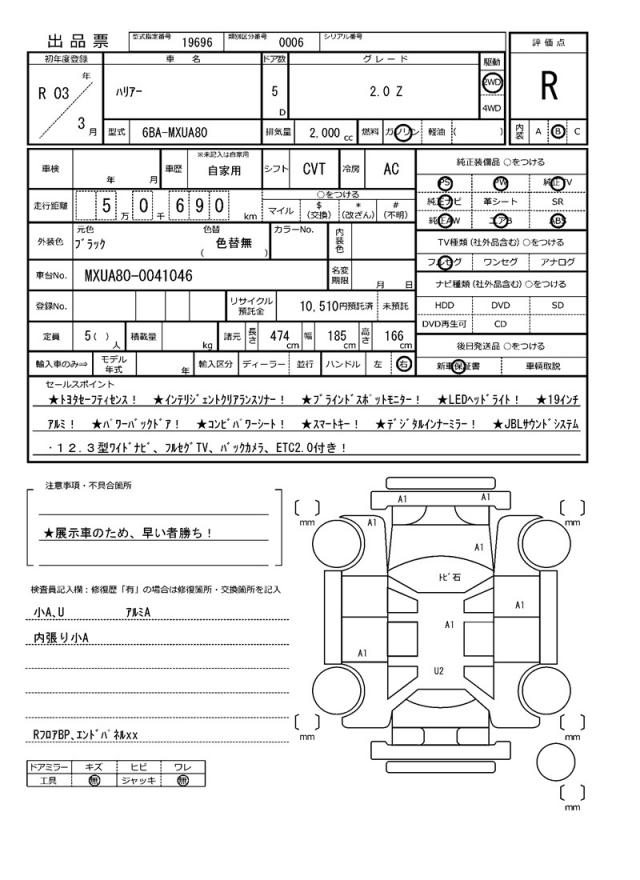 出品票 型式指定番号 19696 類別区分番号 0006 シリアル番号
評価点
R
初年度登録 車名 ドア数 グレード 駆動
R 03 年 3 月 ﾊﾘｱｰ 5 D 2.0 Z 2WD 4WD
型式 6BA-MXUA80 排気量 2,000 cc 燃料 ガソリン 軽油 ( ) 内装 A B C
車検 年 月 車歴 ※未記入は自家用 自家用 シフト CVT 冷房 AC
純正装備品 ○をつける
PS PW 純正TV
純正ナビ 革シート SR
純正AW エアB ABS
走行距離 5 万 0 千 6 9 0 km
○をつける
マイル $(交換) *(改ざん) #(不明)
外装色 元色 ﾌﾞﾗｯｸ 色替 色替無 ( ) カラーNo. 内装色
TV種類 (社外品含む) ○をつける
フルセグ ワンセグ アナログ
車台No. MXUA80-0041046 名変期限 月 日
ナビ種類 (社外品含む) ○をつける
HDD DVD SD
DVD再生可 CD
登録No. リサイクル預託金 10,510円預託済 未預託
定員 5( ) 人 積載量 kg 諸元 長さ 474 cm 幅 185 cm 高さ 166 cm
後日発送品 ○をつける
新車保証書 車輌取説
輸入車のみ⇨ モデル年式 年 輸入区分 ディーラー 並行 ハンドル 左 右
セールスポイント
★ﾄﾖﾀｾｰﾌﾃｨｾﾝｽ！ ★ｲﾝﾃﾘｼﾞｪﾝﾄｸﾘｱﾗﾝｽｿﾅｰ！ ★ﾌﾞﾗｲﾝﾄﾞｽﾎﾟｯﾄﾓﾆﾀｰ！ ★LEDﾍｯﾄﾞﾗｲﾄ！ ★19ｲﾝﾁ
ｱﾙﾐ！ ★ﾊﾟﾜｰﾊﾞｯｸﾄﾞｱ！ ★ｺﾝﾋﾞﾊﾟﾜｰｼｰﾄ！ ★ｽﾏｰﾄｷｰ！ ★ﾃﾞｼﾞﾀﾙｲﾝﾅｰﾐﾗｰ！ ★JBLｻｳﾝﾄﾞｼｽﾃﾑ
・１２．３型ﾜｲﾄﾞﾅﾋﾞ、ﾌﾙｾｸﾞTV、ﾊﾞｯｸｶﾒﾗ、ETC2.0付き！
注意事項・不具合箇所
★展示車のため、早い者勝ち！
検査員記入欄：修復歴「有」の場合は修復箇所・交換箇所を記入
小A､U ｱﾙﾐA
内張り小A
RﾌﾛｱBP､ｴﾝﾄﾞﾊﾟﾈﾙxx
ドアミラー キズ ヒビ ワレ
工具 無 ジャッキ 無
A1 A1
mm A1 mm
A1
ﾄﾋﾞ石
A1
A1
A1
U2
mm mm
mm